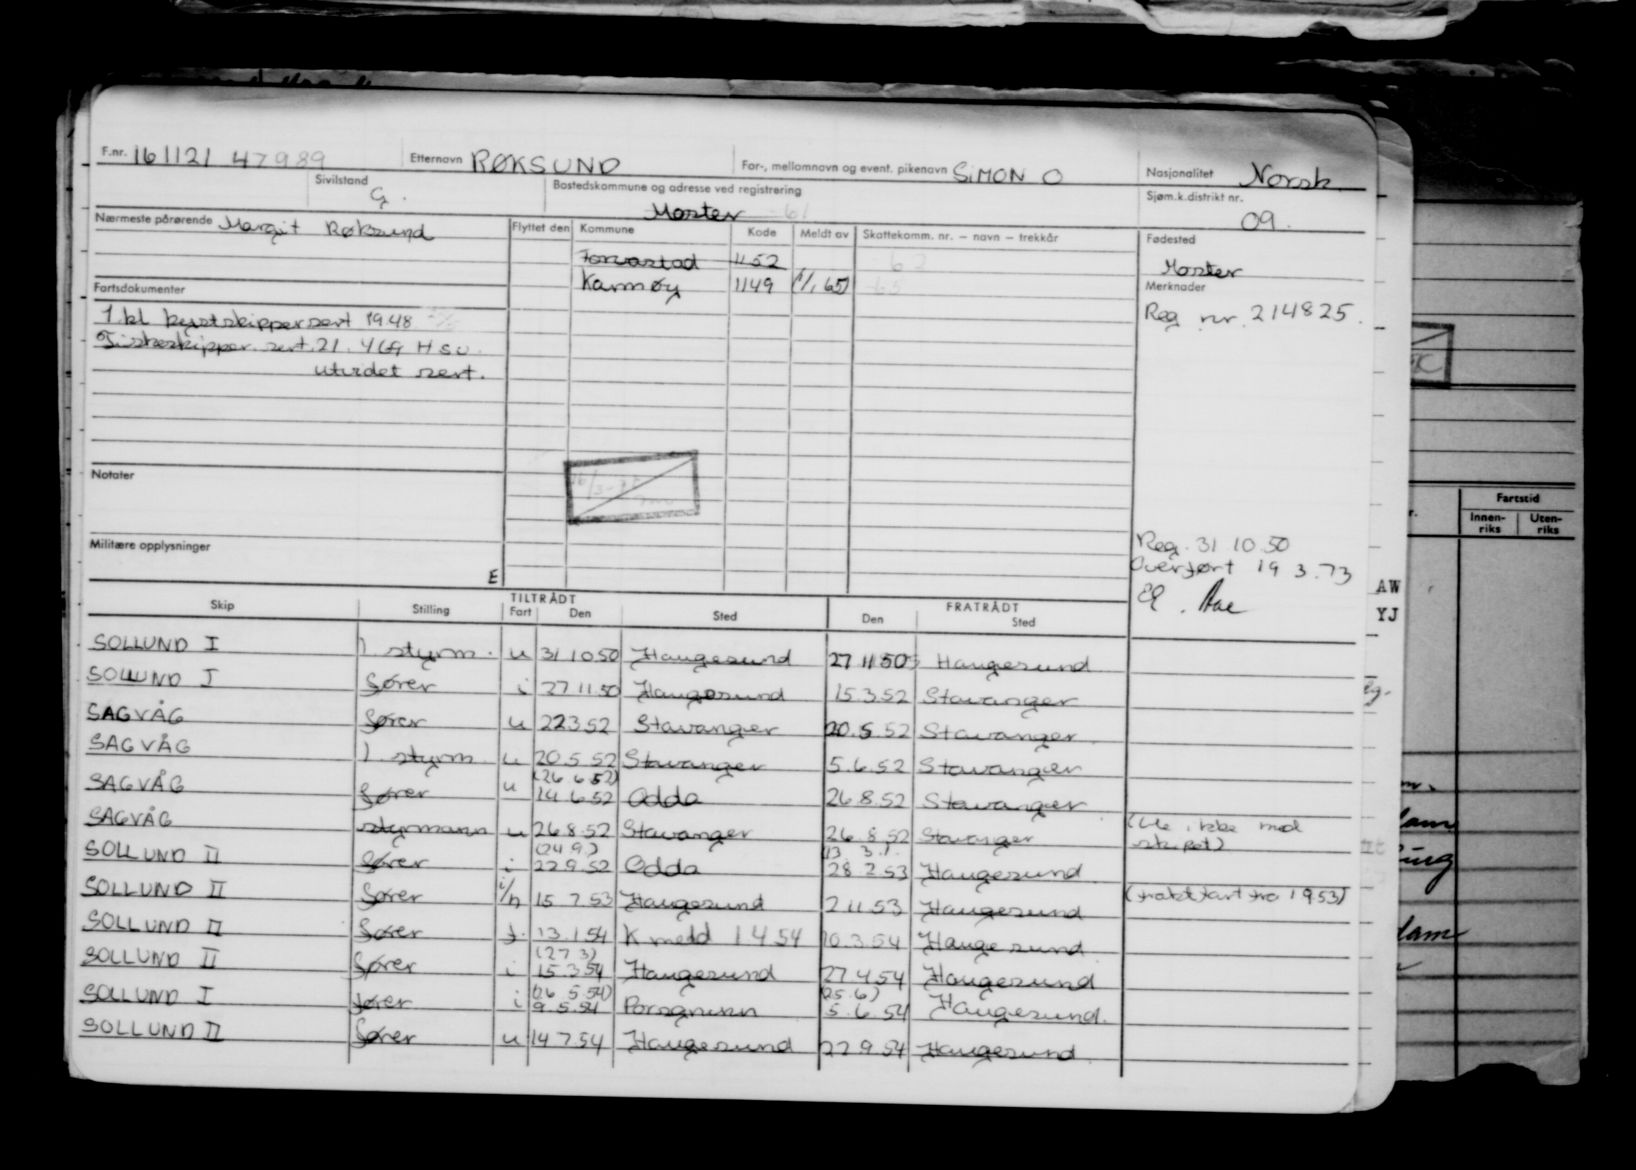 F.nr. 161121 47989 Etternavn RØKSUND For-, mellomnavn og event. pikenavn SIMON O Nasjonalitet Norsk
Sivilstand G. Bostedskommune og adresse ved registrering Moster 61 Sjøm.k.distrikt nr. 09.
Nærmeste pårørende Margit Røksund Flyttet den Kommune Kode Meldt av Skattekomm. nr. – navn – trekkår Fødested
Torvastad 1152 62 Moster
Karmøy 1149 (1/1 65) 65 Merknader
Fartsdokumenter Reg nr. 214825.
1. kl kystskippersert 1948
Fiskeskipper. sert. 21. 4 69 H su.
utvidet sert.
Notater
Militære opplysninger
Reg. 31 10 50
Overført 19 3.73
E
AW
YJ
Skip Stilling TILTRÅDT Fart Den Sted FRATRÅDT Den Sted
SOLLUND I 1 styrm. u 31 10 50 Haugesund 27 11 50 Haugesund
SOLLUND I fører i 27 11 50 Haugesund 15.3.52 Stavanger
SAGVÅG fører u 22 3 52 Stavanger 20.5.52 Stavanger.
SAGVÅG 1. styrm. u 20.5.52 Stavanger 5.6.52 Stavanger
SAGVÅG fører u (26 6 52) 14 6 52 Odda 26.8.52 Stavanger
SAGVÅG styrmann u 26 8 52 Stavanger 26.8.52 Stavanger (Ble ikke med skipet)
SOLLUND II fører i (24 9.) 22 9.52 Odda (3 3.). 28 2 53 Haugesund
SOLLUND II fører i/n 15 7 53 Haugesund 2 11 53 Haugesund (fraktfart fra 1953)
SOLLUND II fører f. 13.1 54 K meld 1 4 54 10.3.54 Haugesund
SOLLUND II fører i (27 3) 15 3 54 Haugesund 27 4 54 Haugesund
SOLLUND I fører i (26 5 54) 9.5.54 Porsgrunn (25.6) 5.6.54 Haugesund.
SOLLUND II fører u 14 7.54 Haugesund 22 9 54 Haugesund.
Fartstid
Innen-riks Uten-riks